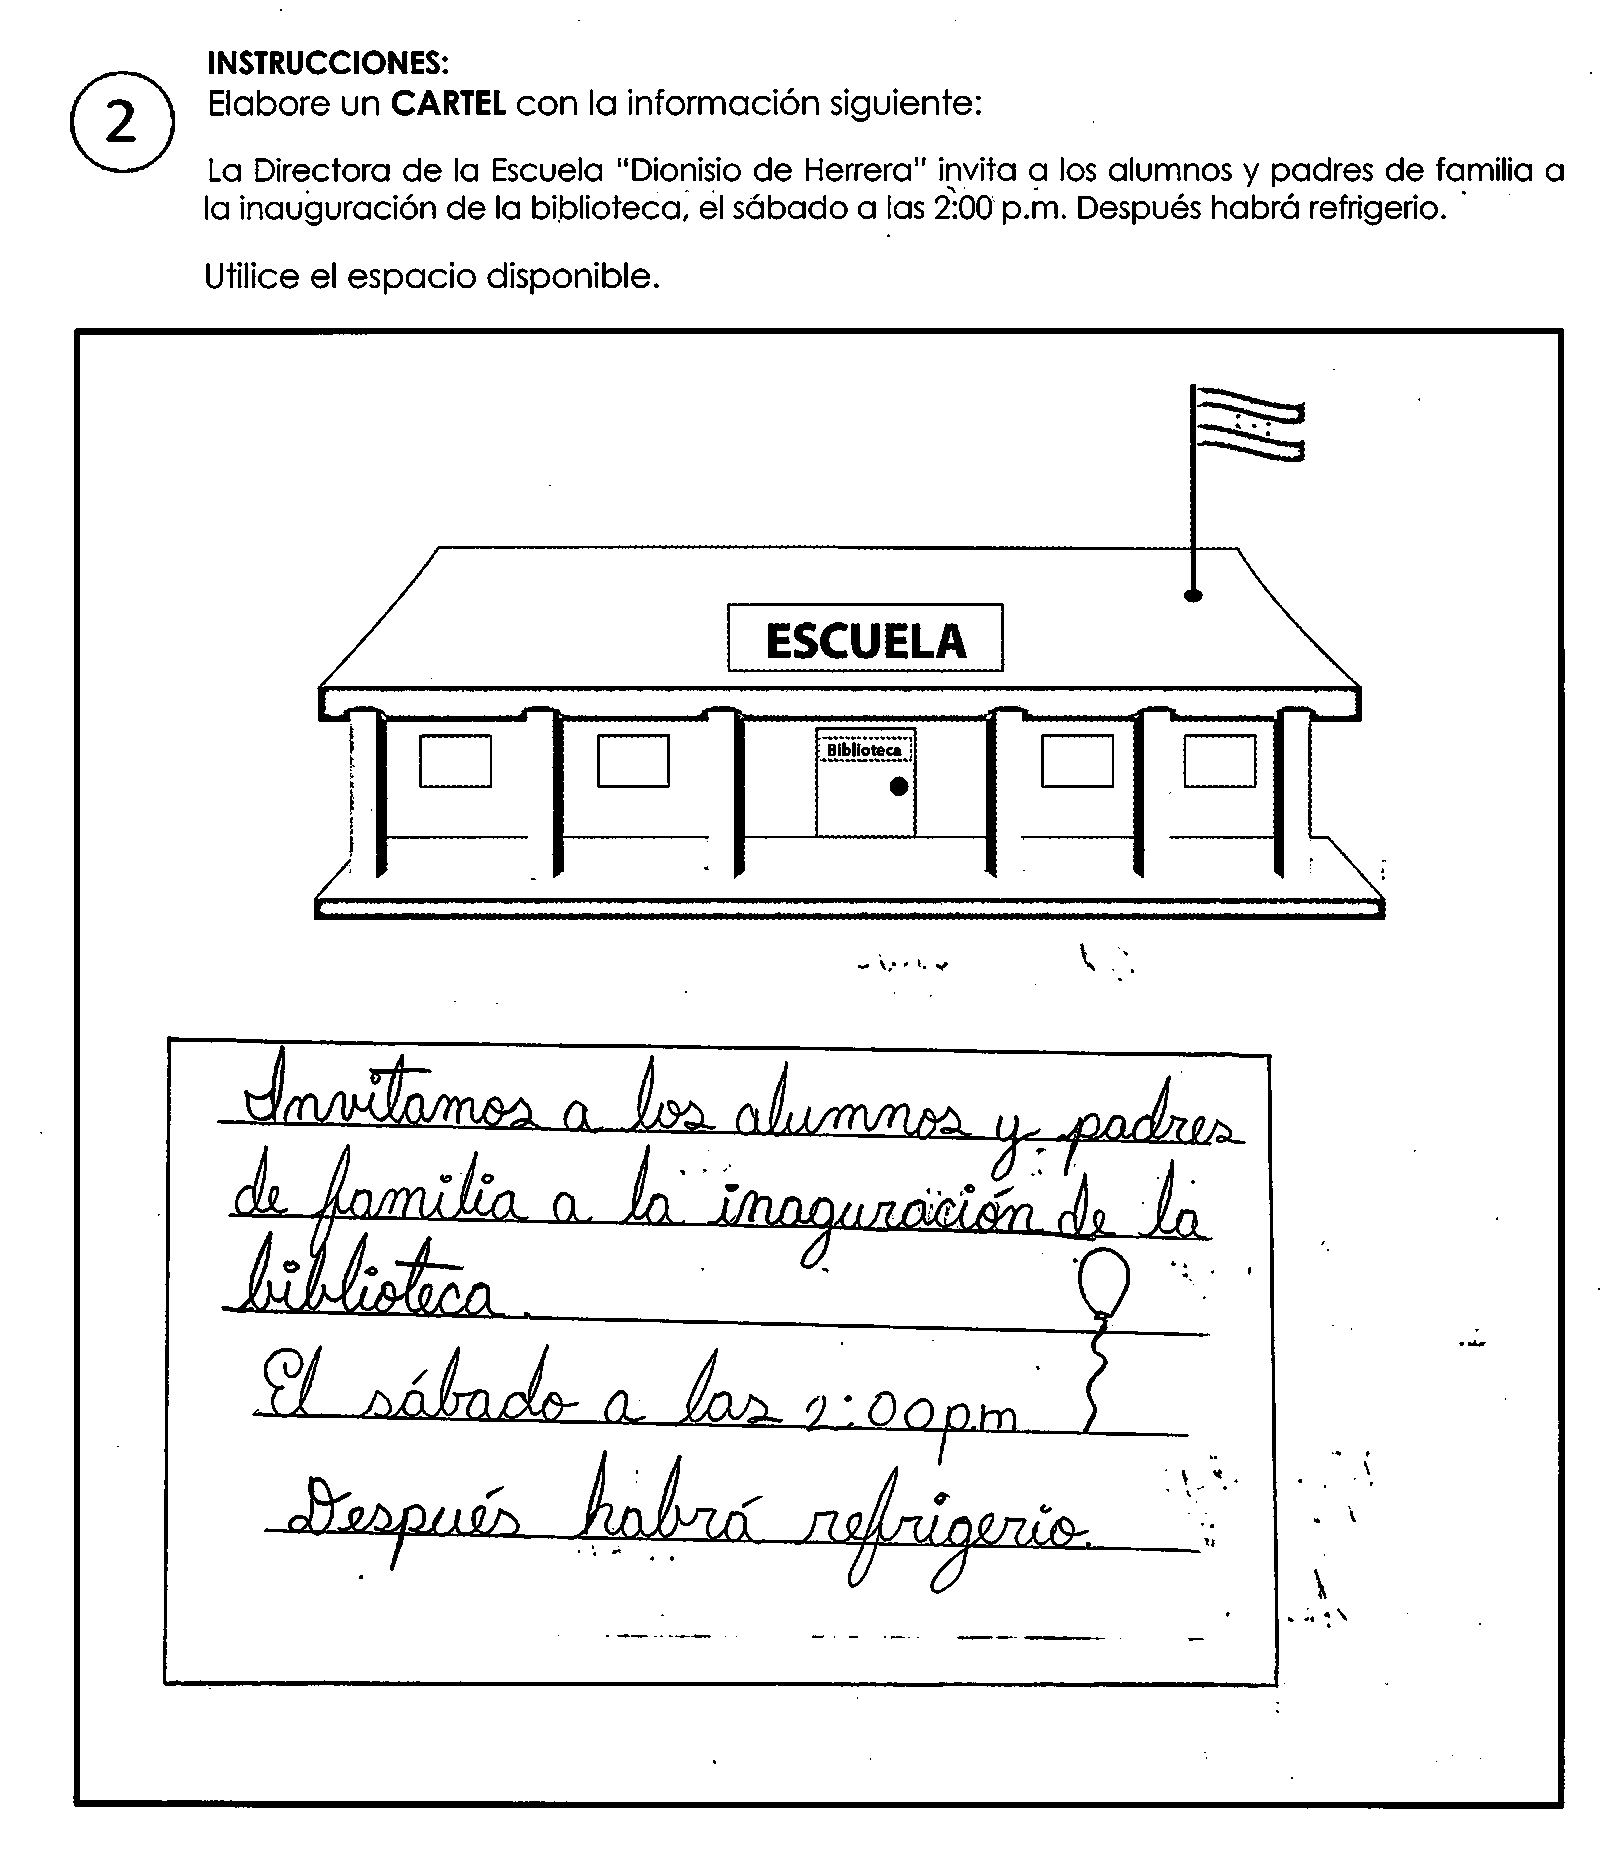 INSTRUCCIONES:
2
Elabore un CARTEL con la información siguiente:
La Directora de la Escuela "Dionisio de Herrera" invita a los alumnos y padres de familia a
la inauguración de la biblioteca, el sábado a las 2:00 p.m. Después habrá refrigerio.
Utilice el espacio disponible.
ESCUELA
Biblioteca
Invitamos a los alumnos y padres
de familia a la inaguración de la
biblioteca.
El sábado a las 2:00 p.m
Después habrá refrigerio.